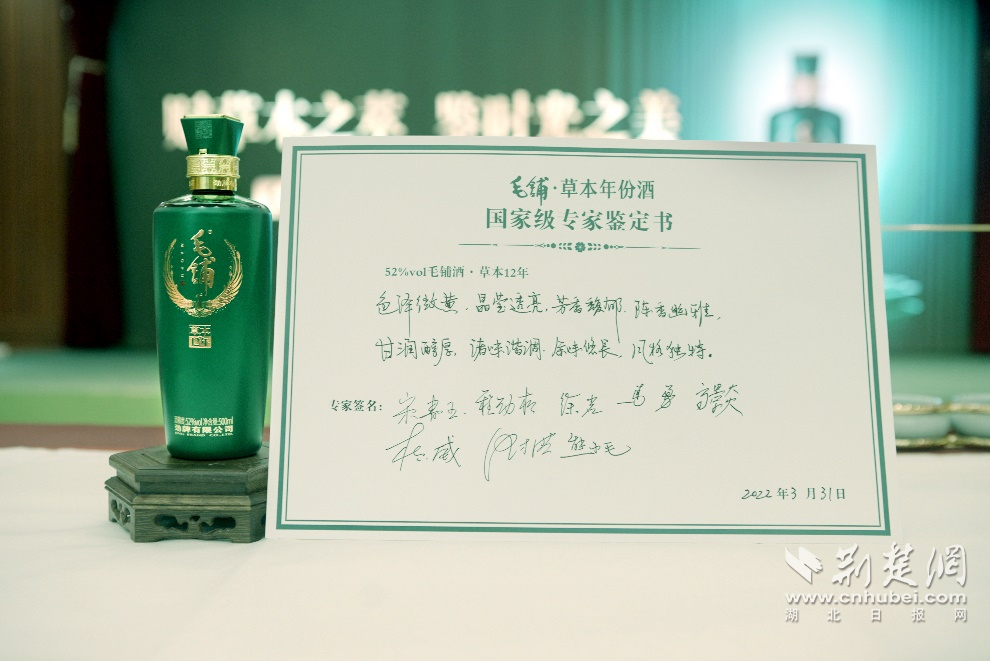 鉴时光之美
毛铺·草本年份酒
国家级专家鉴定书
52%vol毛铺酒·草本12年
色泽微黄、晶莹透亮、芳香馥郁、陈香幽雅，
甘润醇厚、诸味谐调、余味悠长、风格独特。
专家签名：
马勇
2022年3月31日
毛铺
草本
52%vol 净含量:500ml
劲牌有限公司
荆楚网
www.cnhubei.com
湖北日报网